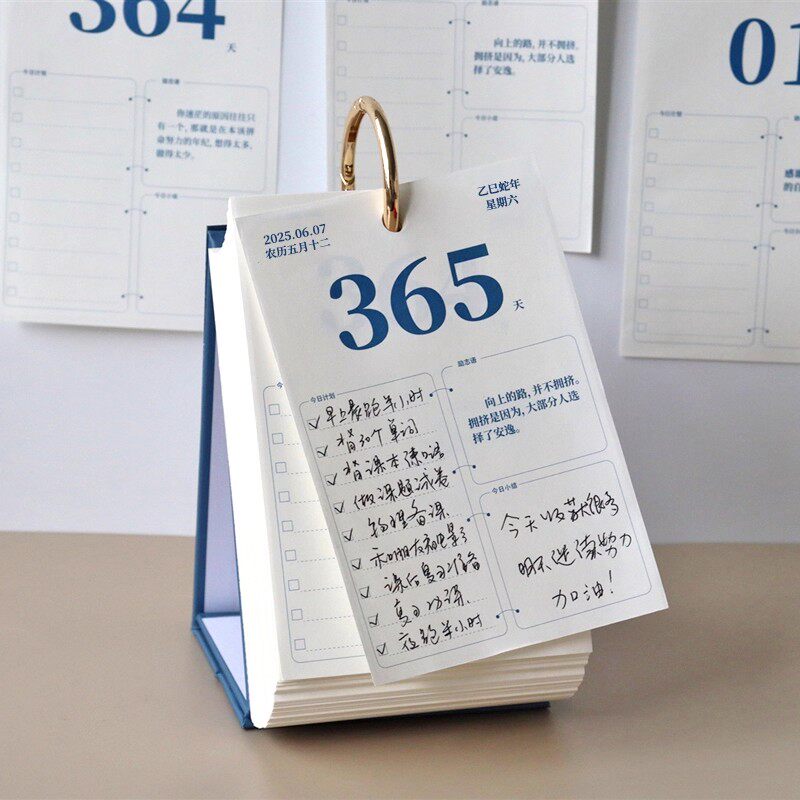 364
天
今日计划
励志语
你迷茫的原因往往只
有一个，那就是在本该拼
命努力的年纪，想得太多，
做得太少。
今日小结
励志语
向上的路，并不拥挤。
拥挤是因为，大部分人选
择了安逸。
今日小结
01
今日计划
2025.06.07
农历五月十二
乙巳蛇年
星期六
365
天
今日计划
早上晨跑半小时
背30个单词
背课本
做课题试卷
物理备课
和朋友看电影
课后复习准备
复习功课
夜跑半小时
励志语
向上的路，并不拥挤。
拥挤是因为，大部分人选
择了安逸。
今日小结
今天收获很多
明天继续努力
加油！